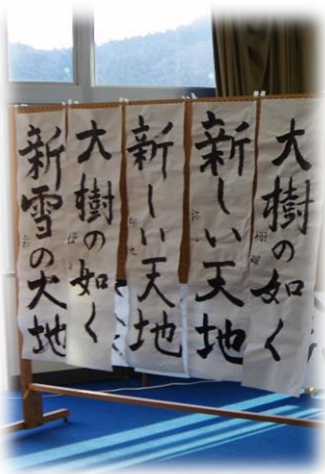 大樹の如く
新しい天地
新しい天地
大樹の如く
新雪の大地